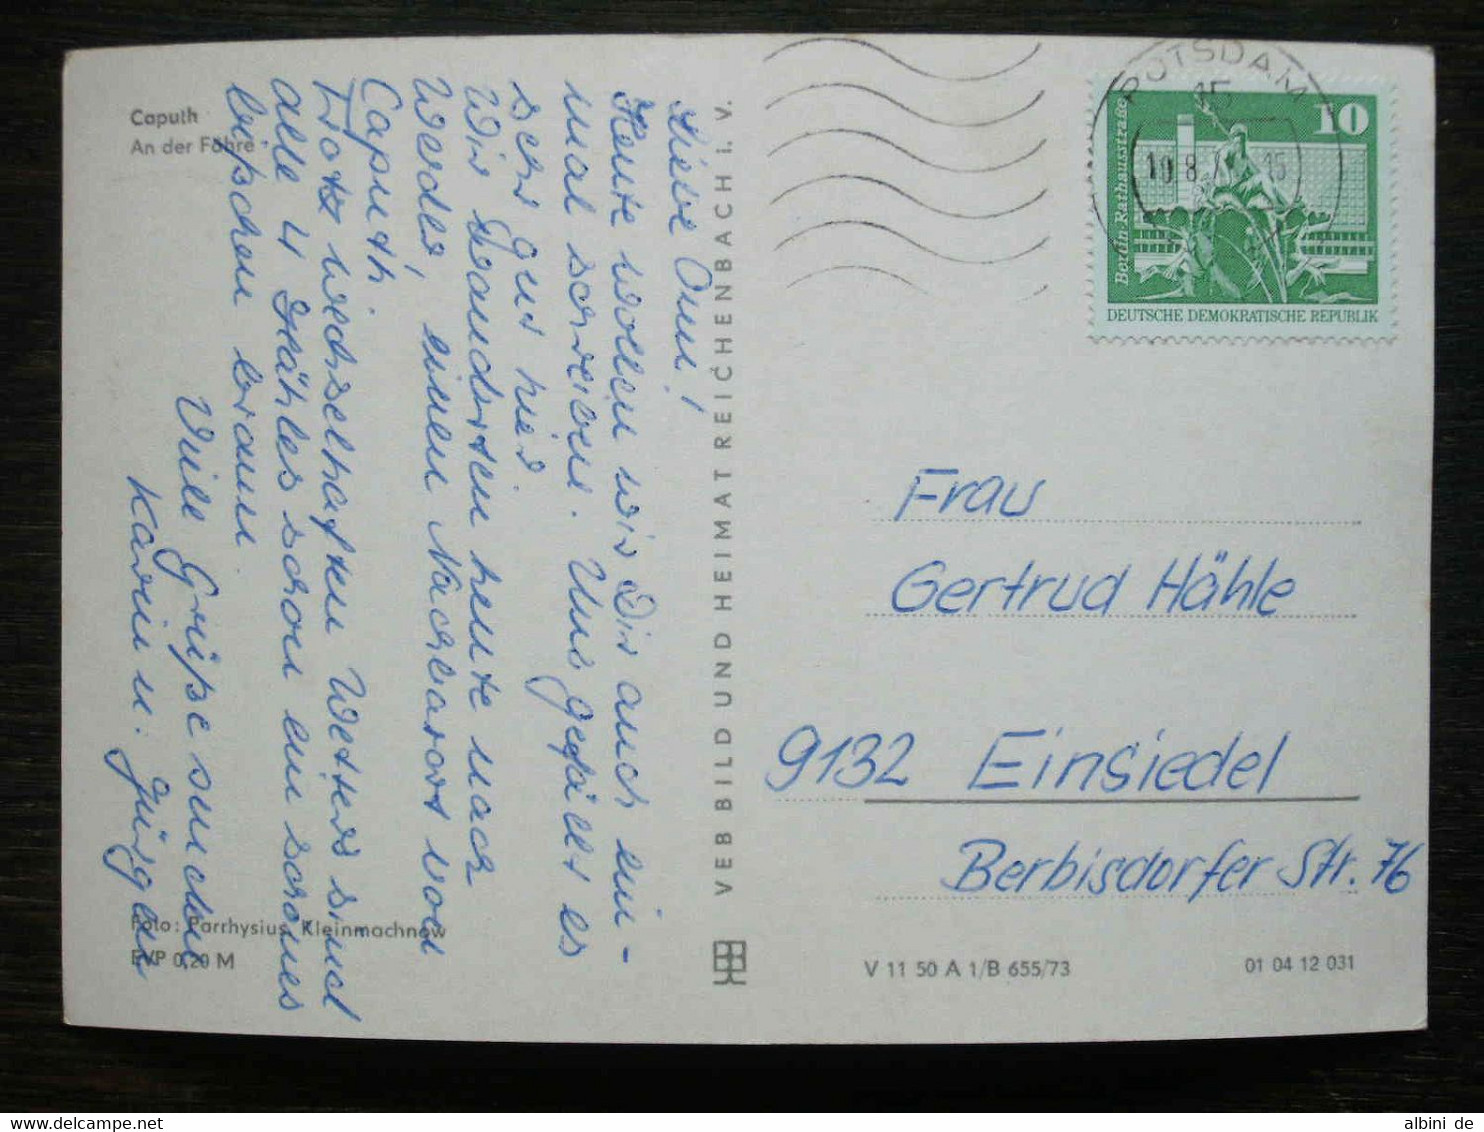 Caputh
An der Föhre
Liebe Omi!
Heute wollen wir Dir auch ein-
mal schreiben. Uns gefällt es
sehr gut hier.
Wir wanderten heute nach
Werder, einen Nachbarort von
Caputh.
Trotz wechselhaften Wetters sind
alle 4 Hähles schon ein schönes
bißchen braun.
Viele Grüße senden
Karin u. Jürgen
Foto: Parrhysius, Kleinmachnow
EVP 0,20 M
VEB BILD UND HEIMAT REICHENBACH i. V.
POTSDAM
15
10
Berlin, Rathausstraße
DEUTSCHE DEMOKRATISCHE REPUBLIK
Frau
Gertrud Hähle
9132 Einsiedel
Berbisdorfer Str. 76
V 11 50 A 1/B 655/73
01 04 12 031
albini de